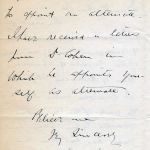 to appoint an alternate.
I have received a letter
from D Cohen in
which he appoints you-
self as alternate.
Believe me
Yr Sincerely